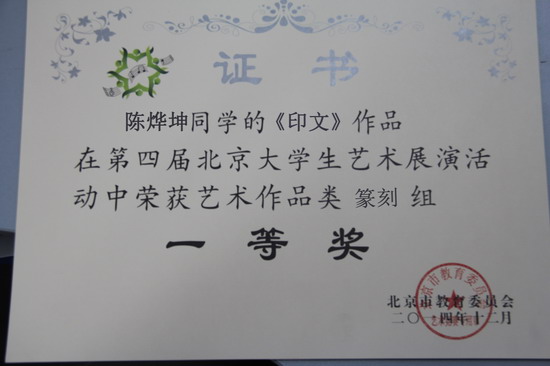 证书
陈烨坤同学的《印文》作品
在第四届北京大学生艺术展演活
动中荣获艺术作品类 篆刻 组
一等奖
北京市教育委员会
二〇一四年十二月